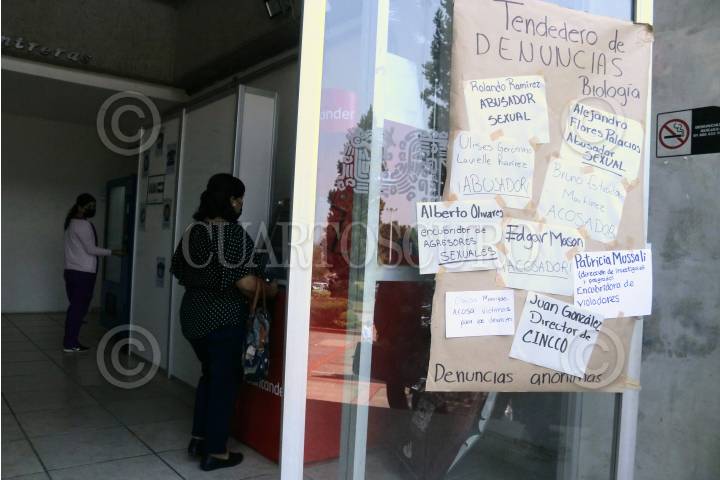 Tendedero de
DENUNCIAS
Biología
Rolando Ramirez
ABUSADOR
SEXUAL
Alejandro
Flores Palacios
Abusador
SEXUAL
Ulises Geronimo
Ramirez
¡ABUSADOR!
Bruno
Martinez
ACOSADOR
Alberto Olivares
encubridor de
AGRESORES
SEXUALES
Edgar Mason
ACOSADOR
Patricia Mussali
(dirección de investigación
y posgrado)
Encubridora de
violadores
Acosa victimas
para
Juan González
Director de
CINCCO
Denuncias anonimas
CUARTOSCURO
nder
Santander